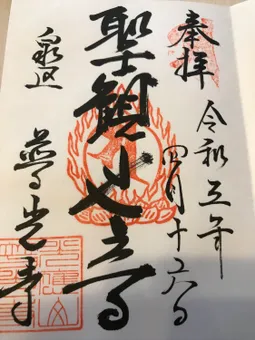 奉拝
令和五年
四月十六日
聖観世音
泉区
光寺